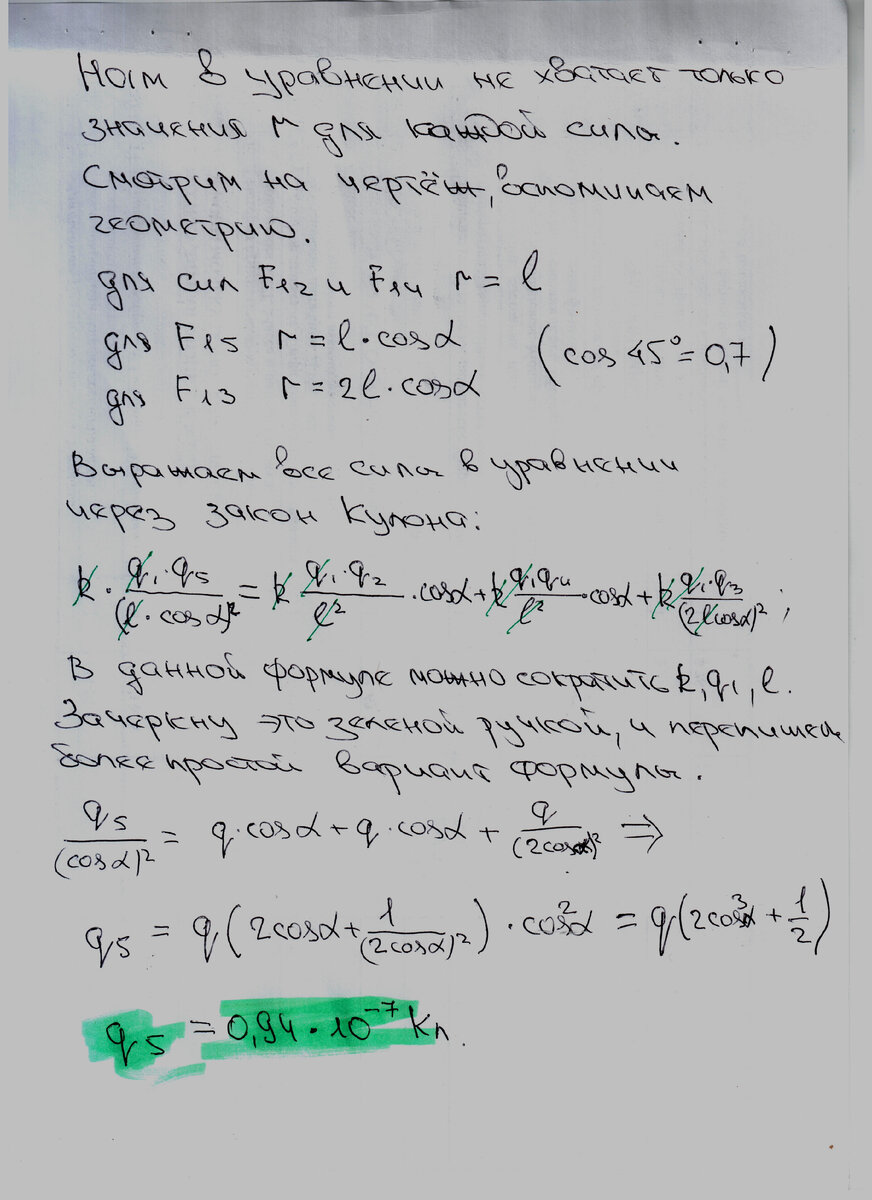 Нам в уравнении не хватает только
значения r для каждой силы.
Смотрим на чертёж, вспоминаем
геометрию.
для сил F₁₂ и F₁₄ r = l
для F₁₅ r = l·cosα (cos 45° = 0,7)
для F₁₃ r = 2l·cosα
Выражаем все силы в уравнении
через закон Кулона:
k · q₁·q₅/(l·cosα)² = k q₁·q₂/l² ·cosα + k q₁q₄/l² ·cosα + k q₁·q₃/(2lcosα)² ;
В данной формуле можно сократить k, q₁, l.
Зачеркну это зеленой ручкой, и перепишем
более простой вариант формулы.
q₅/(cosα)² = q·cosα + q·cosα + q/(2cosα)² ⇒
q₅ = q(2cosα + 1/(2cosα)²) · cos²α = q(2cos³α + 1/2)
q₅ = 0,94·10⁻⁷ Кл.